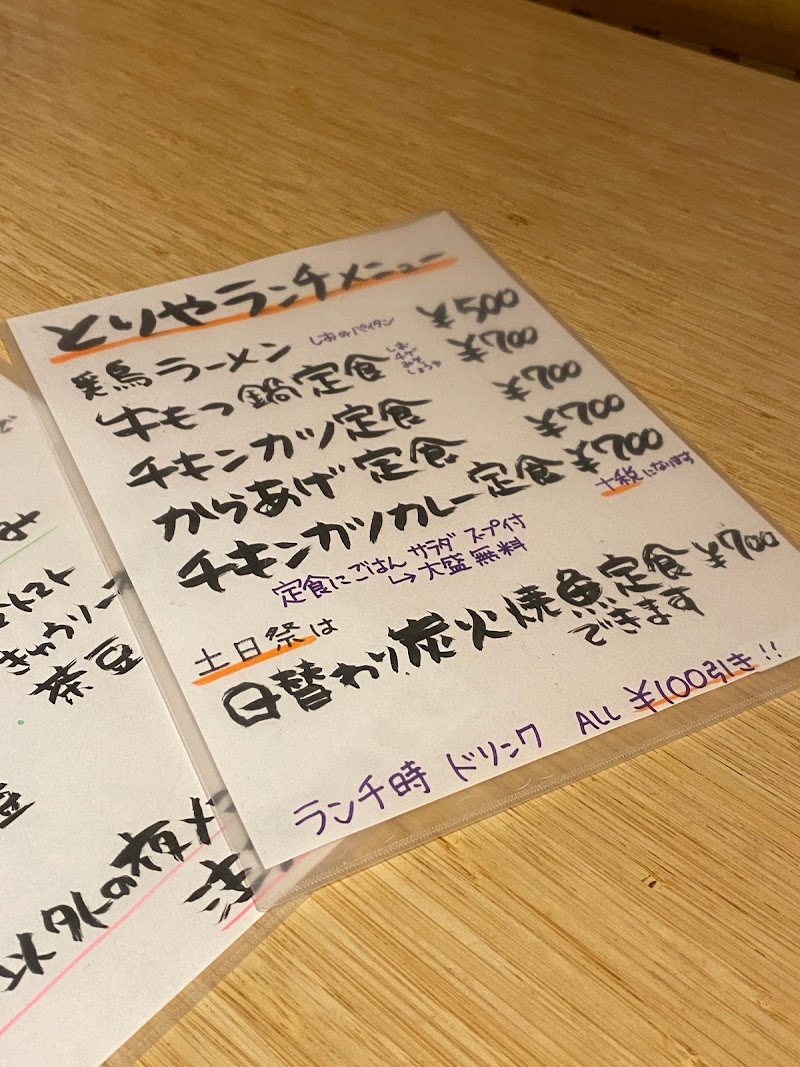 とりやランチメニュー
鶏ラーメン しおorパイタン ¥500
牛もつ鍋定食 しお チゲ みそ しょうゆ ¥700
チキンカツ定食 ¥700
からあげ定食 ¥700
チキンカツカレー定食 ¥700
+税になります
定食にごはん サラダ スープ付
↳大盛無料
土日祭は
日替わり炭火焼魚定食 ¥700
できます
ランチ時 ドリンク ALL ¥100引き!!
トマト
きゅうり
茶豆
豆
以外の夜メ